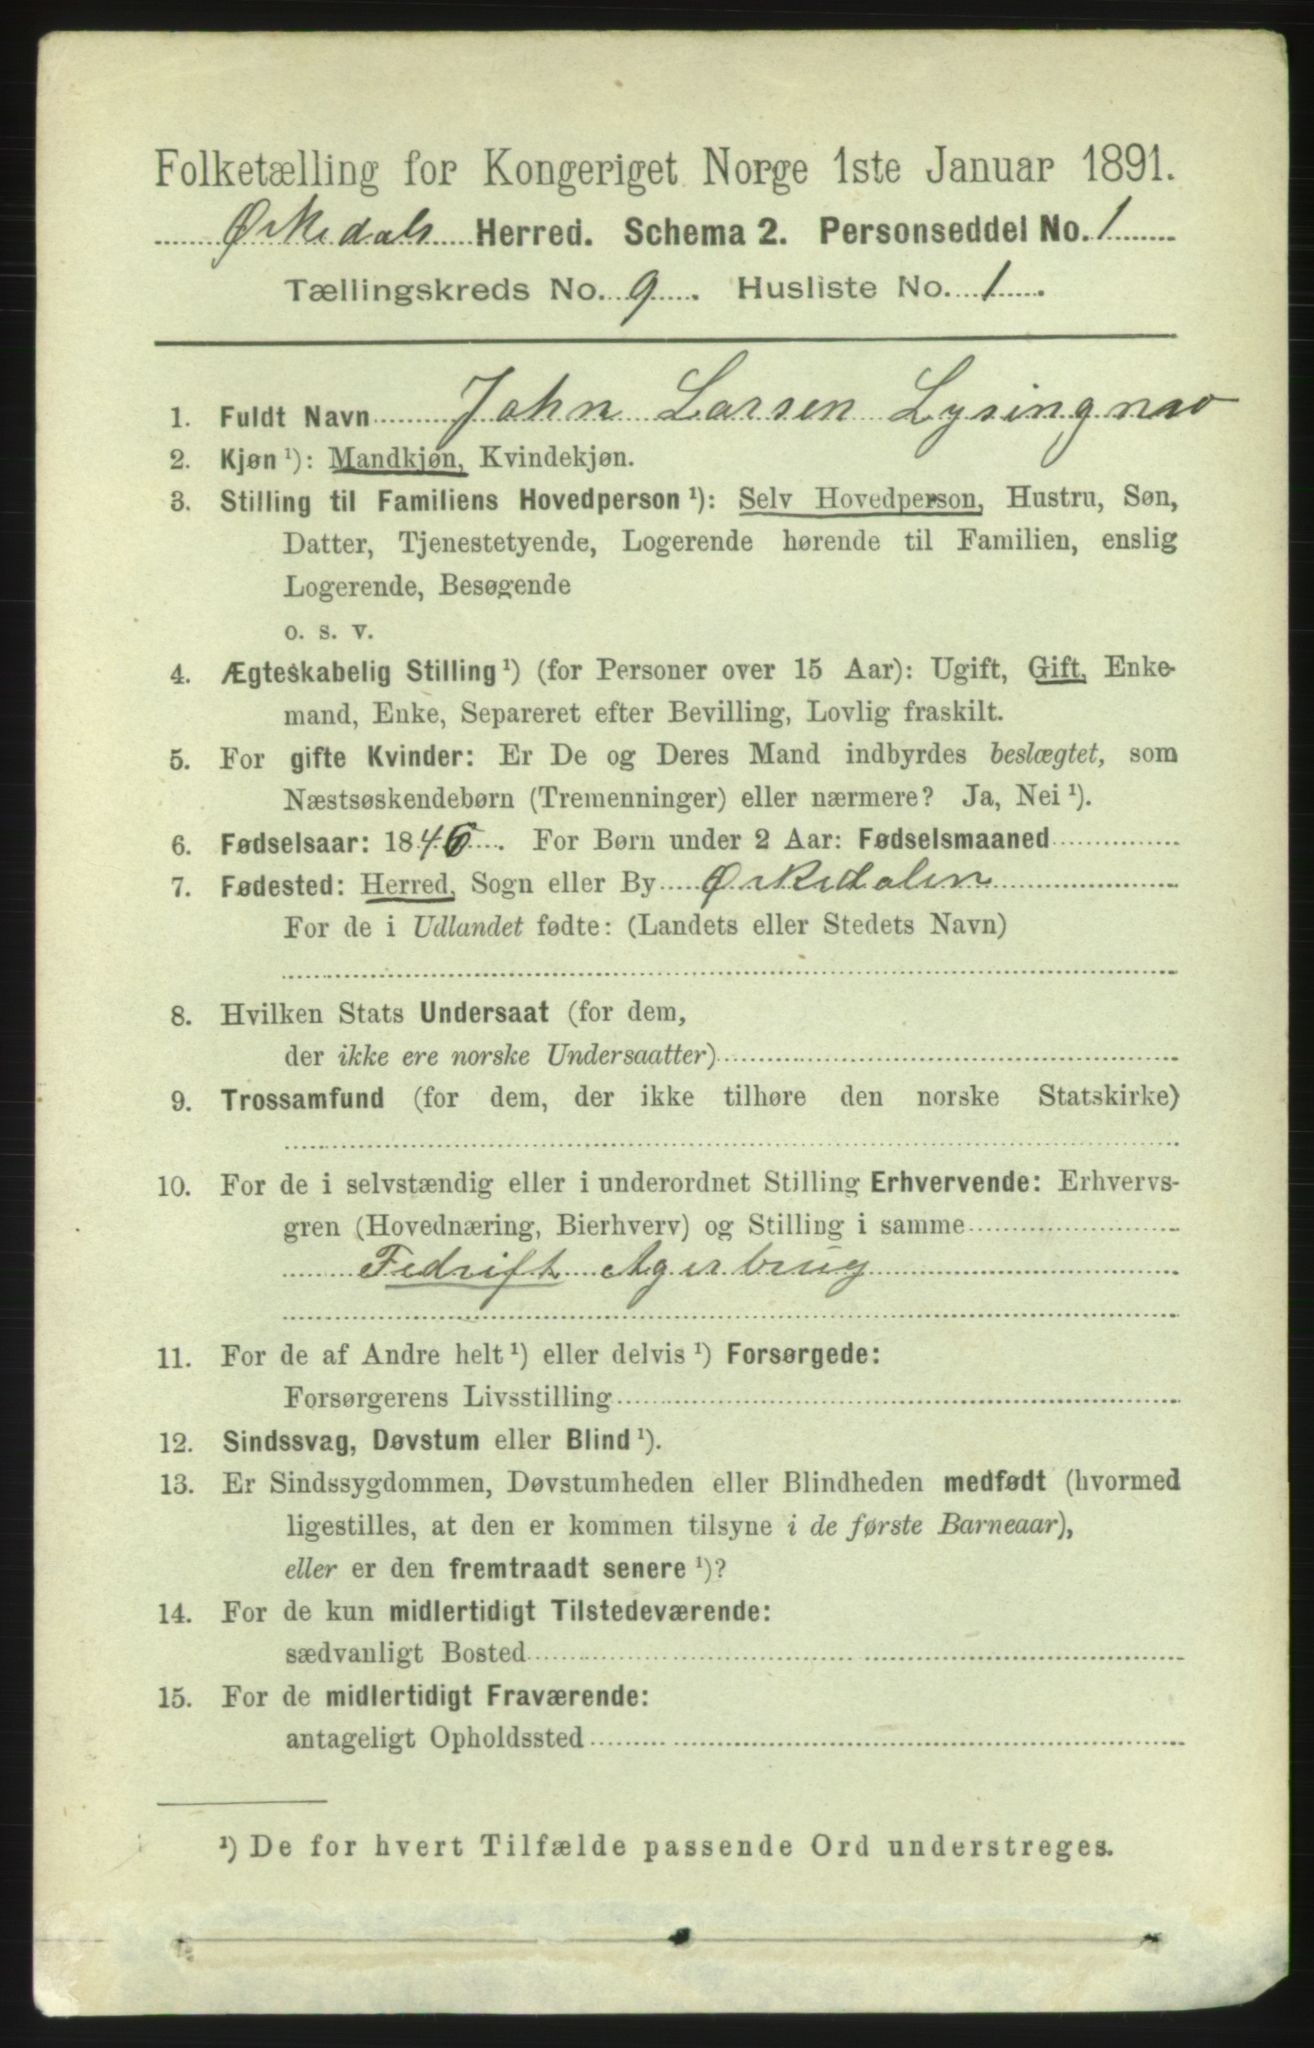 Folketælling for Kongeriget Norge 1ste Januar 1891.
Ørkedals Herred. Schema 2. Personseddel No. 1
Tællingskreds No. 9. Husliste No. 1.
1. Fuldt Navn John Larsen
2. Kjøn ¹): Mandkjøn, Kvindekjøn.
3. Stilling til Familiens Hovedperson ¹): Selv Hovedperson, Hustru, Søn,
Datter, Tjenestetyende, Logerende hørende til Familien, enslig
Logerende, Besøgende
o. s. v.
4. Ægteskabelig Stilling ¹) (for Personer over 15 Aar): Ugift, Gift, Enke-
mand, Enke, Separeret efter Bevilling, Lovlig fraskilt.
5. For gifte Kvinder: Er De og Deres Mand indbyrdes beslægtet, som
Næstsøskendebørn (Tremenninger) eller nærmere? Ja, Nei ¹).
6. Fødselsaar: 1846. For Børn under 2 Aar: Fødselsmaaned
7. Fødested: Herred, Sogn eller By Ørkedalen
For de i Udlandet fødte: (Landets eller Stedets Navn)
8. Hvilken Stats Undersaat (for dem,
der ikke ere norske Undersaatter)
9. Trossamfund (for dem, der ikke tilhøre den norske Statskirke)
10. For de i selvstændig eller i underordnet Stilling Erhvervende: Erhvervs-
gren (Hovednæring, Bierhverv) og Stilling i samme
Fedrift Agerbrug
11. For de af Andre helt ¹) eller delvis ¹) Forsørgede:
Forsørgerens Livsstilling
12. Sindssvag, Døvstum eller Blind ¹).
13. Er Sindssygdommen, Døvstumheden eller Blindheden medfødt (hvormed
ligestilles, at den er kommen tilsyne i de første Barneaar),
eller er den fremtraadt senere ¹)?
14. For de kun midlertidigt Tilstedeværende:
sædvanligt Bosted
15. For de midlertidigt Fraværende:
antageligt Opholdssted
¹) De for hvert Tilfælde passende Ord understreges.